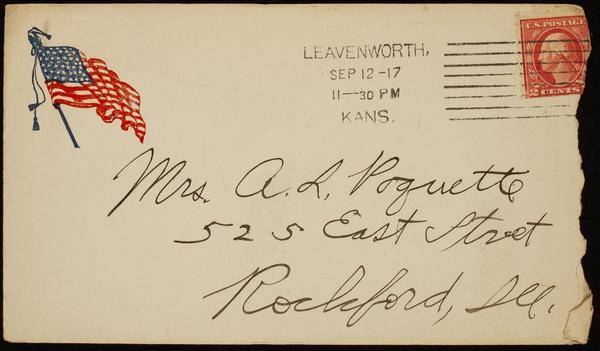 LEAVENWORTH,
SEP 12-17
11-30 PM
KANS.
U.S. POSTAGE
2 CENTS
Mrs. A. L. Poquette
525 East Street
Rockford, Ill.